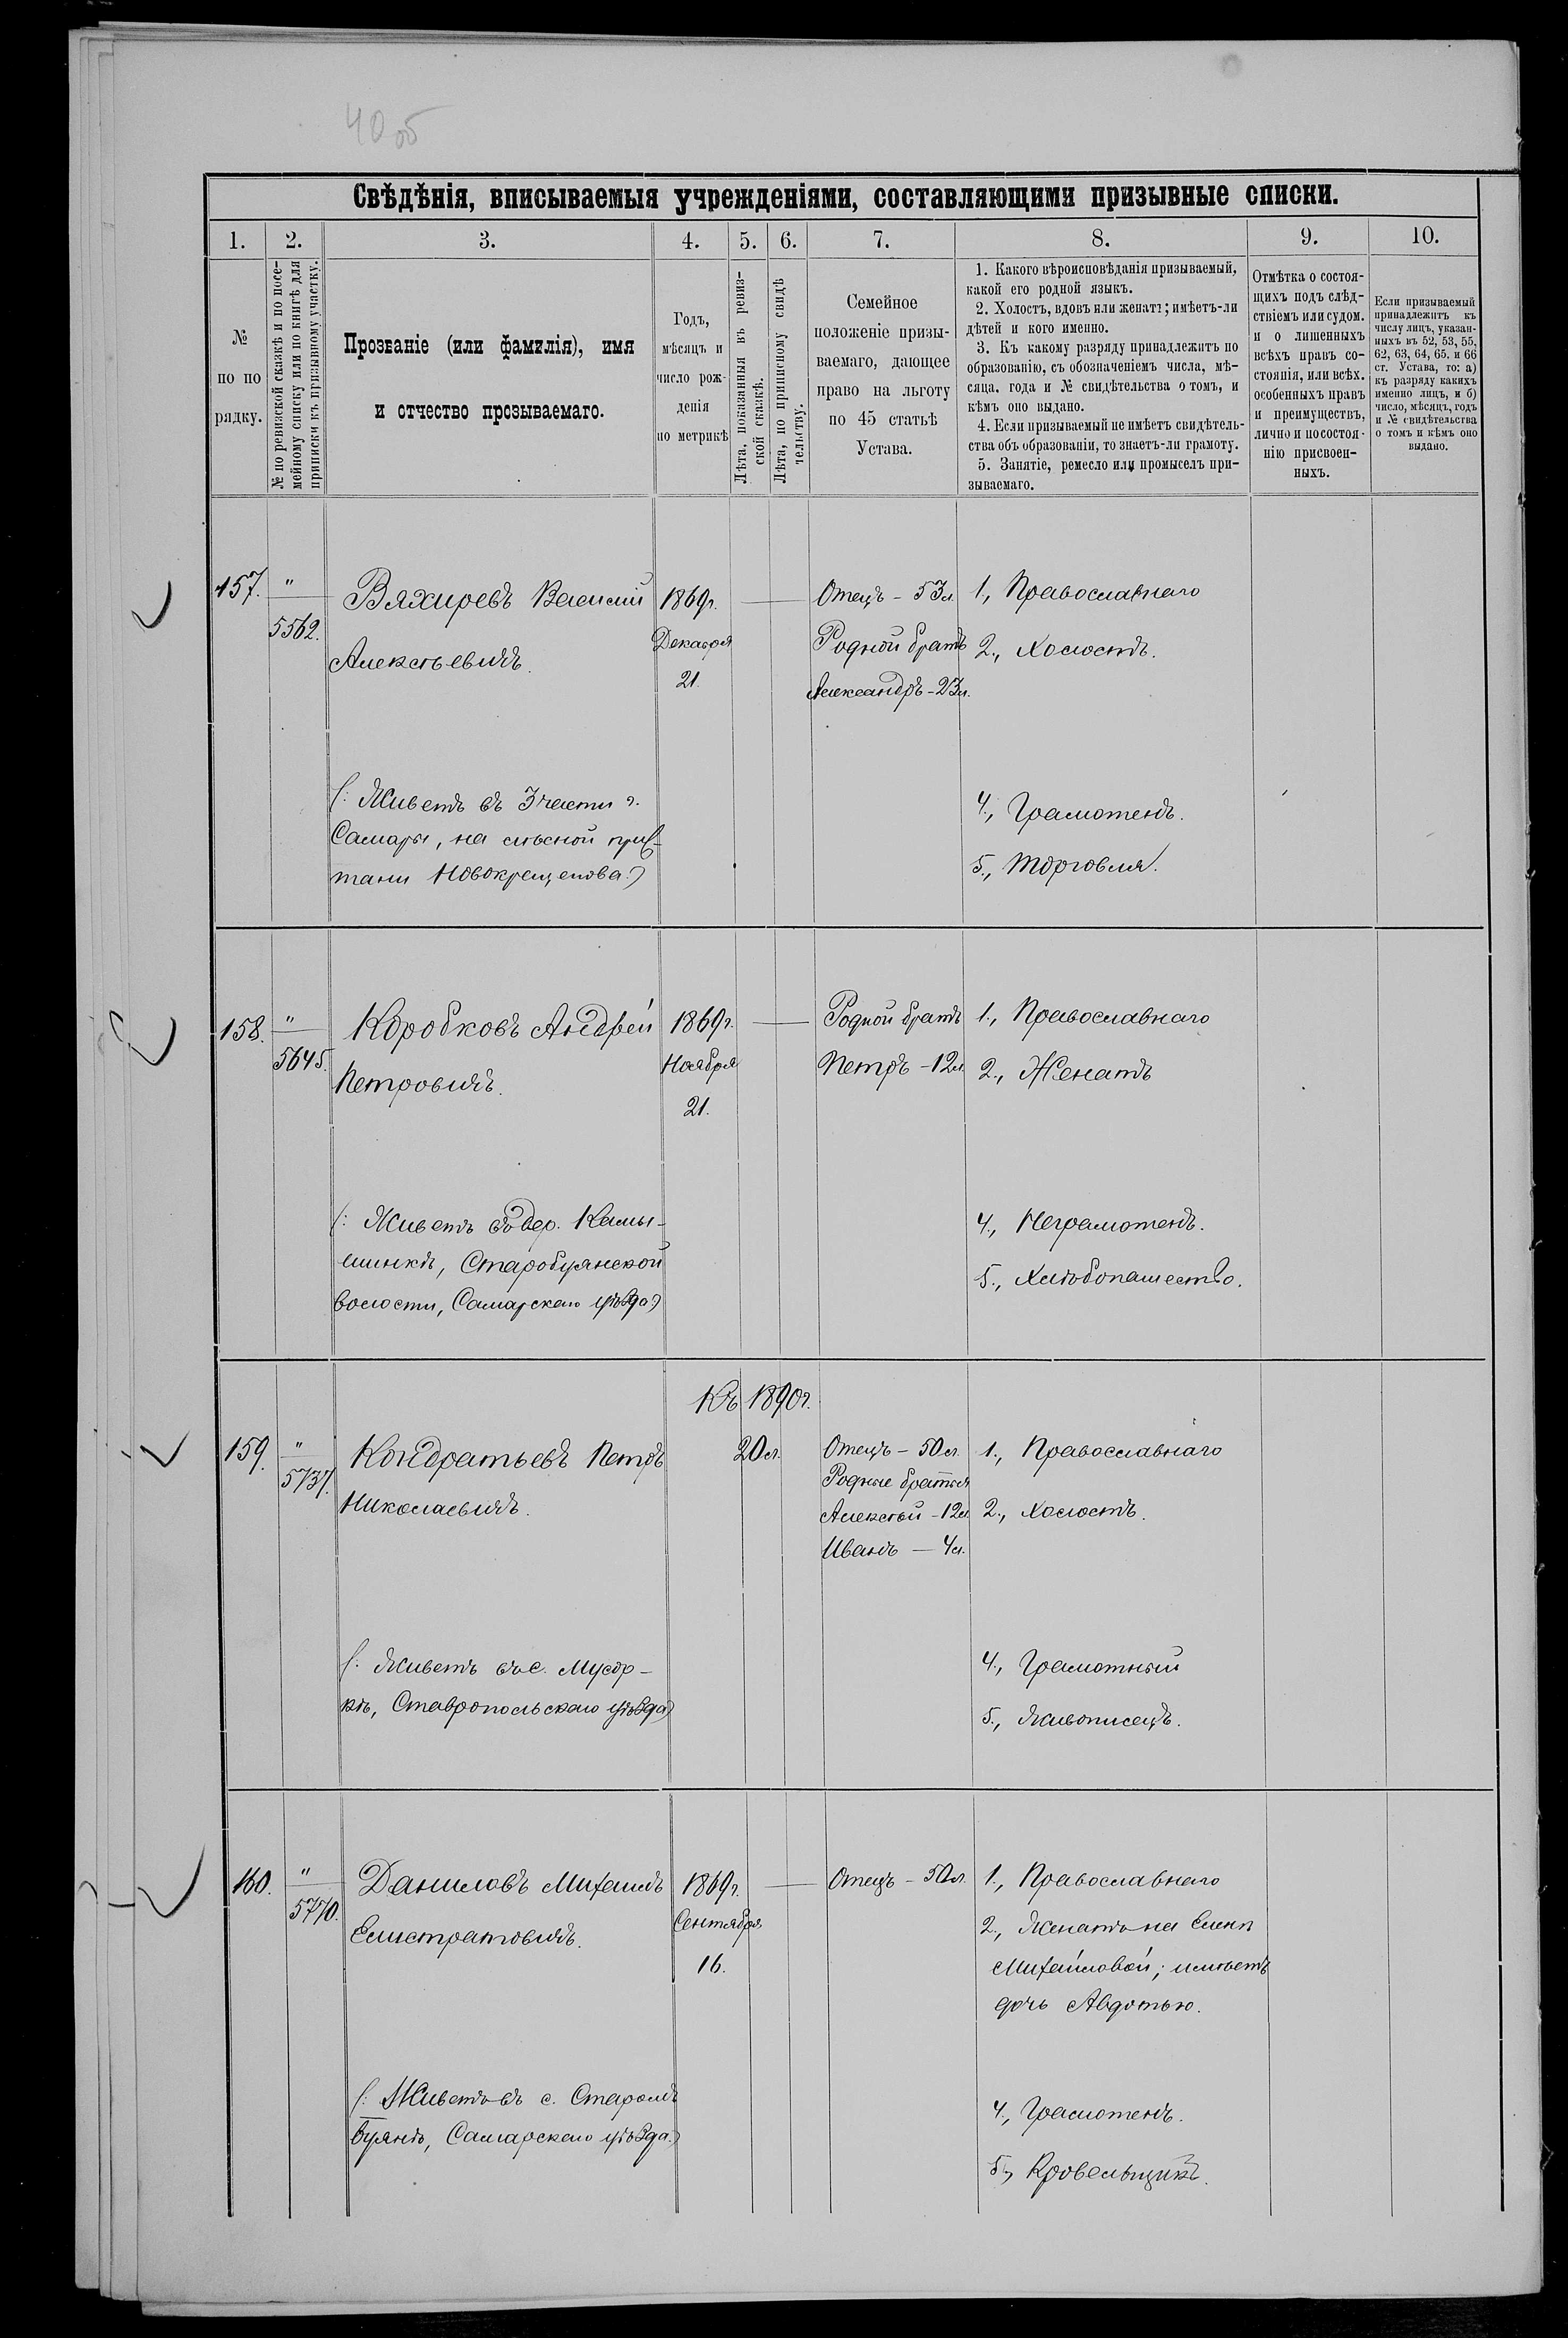 40 об
Свѣдѣнія, вписываемыя учрежденіями, составляющими призывные списки.
1. 2. 3. 4. 5. 6. 7. 8. 9. 10.
№
по по
рядку.
№ по ревизской сказкѣ и по посе-
мейному списку или по книгѣ для
приписки къ призывному участку.
Прозваніе (или фамилія), имя
и отчество прозываемаго.
Годъ,
мѣсяцъ и
число рож-
денія
по метрикѣ
Лѣта, показанныя въ ревиз-
ской сказкѣ.
Лѣта, по приписному свидѣ
тельству.
Семейное
положеніе призы-
ваемаго, дающее
право на льготу
по 45 статьѣ
Устава.
1. Какого вѣроисповѣданія призываемый,
какой его родной языкъ.
2. Холостъ, вдовъ или женатъ; имѣетъ-ли
дѣтей и кого именно.
3. Къ какому разряду принадлежитъ по
образованію, съ обозначеніемъ числа, мѣ-
сяца. года и № свидѣтельства о томъ, и
кѣмъ оно выдано.
4. Если призываемый не имѣетъ свидѣтель-
ства объ образованіи, то знаетъ-ли грамоту.
5. Занятіе, ремесло или промыселъ при-
зываемаго.
Отмѣтка о состоя-
щихъ подъ слѣд-
ствіемъ или судом.
и о лишенныхъ
всѣхъ правъ со-
стоянія, или всѣх.
особенныхъ правъ
и преимуществъ,
лично и по состоя-
нію присвоен-
ныхъ.
Если призываемый
принадлежитъ къ
числу лицъ, указан-
ныхъ въ 52, 53, 55,
62, 63, 64, 65. и 66
ст. Устава, то: а)
къ разряду какихъ
именно лицъ, и б)
число, мѣсяцъ, годъ
и № свидѣтельства
о томъ и кѣмъ оно
выдано.
157. "
5562.
Вяхиревъ Василій
Алексѣевичъ.
1869г.
Декабря
21.
Отецъ - 53л.
Родной братъ
Александръ - 23л.
1., Православнаго
2., Холостъ.
(: Живетъ въ 3 части г.
Самары, на лѣсной прис-
тани Новокрещенова :)
4., Грамотенъ.
5., Торговля.
158. "
5645.
Коробковъ Андрей
Петровичъ.
1869г.
Ноября
21.
Родной братъ
Петръ - 12л.
1., Православнаго
2., Женатъ
(: Живетъ въ дер. Камы-
шинкѣ, Старобуянской
волости, Самарскаго уѣзда :)
4., Неграмотенъ.
5., Хлѣбопашество.
159. "
5737.
Кондратьевъ Петръ
Николаевичъ.
Къ 1890г.
20 л.
Отецъ - 50 л.
Родные братья
Алексѣй - 12л.
Иванъ - 4л.
1., Православнаго
2., Холостъ.
(: Живетъ въ с. Мусор-
кѣ, Ставропольскаго уѣзда :)
4., Грамотный
5., Живописецъ.
160. "
5770.
Даниловъ Михаилъ
Елистратовичъ.
1869г.
Сентября
16.
Отецъ - 50л.
1., Православнаго
2., Женатъ на Еленѣ
Михайловой; имѣетъ
дочь Авдотью.
(: Живетъ въ с. Старомъ
Буянѣ, Самарскаго уѣзда :)
4., Грамотенъ.
5., Кровельщикъ.